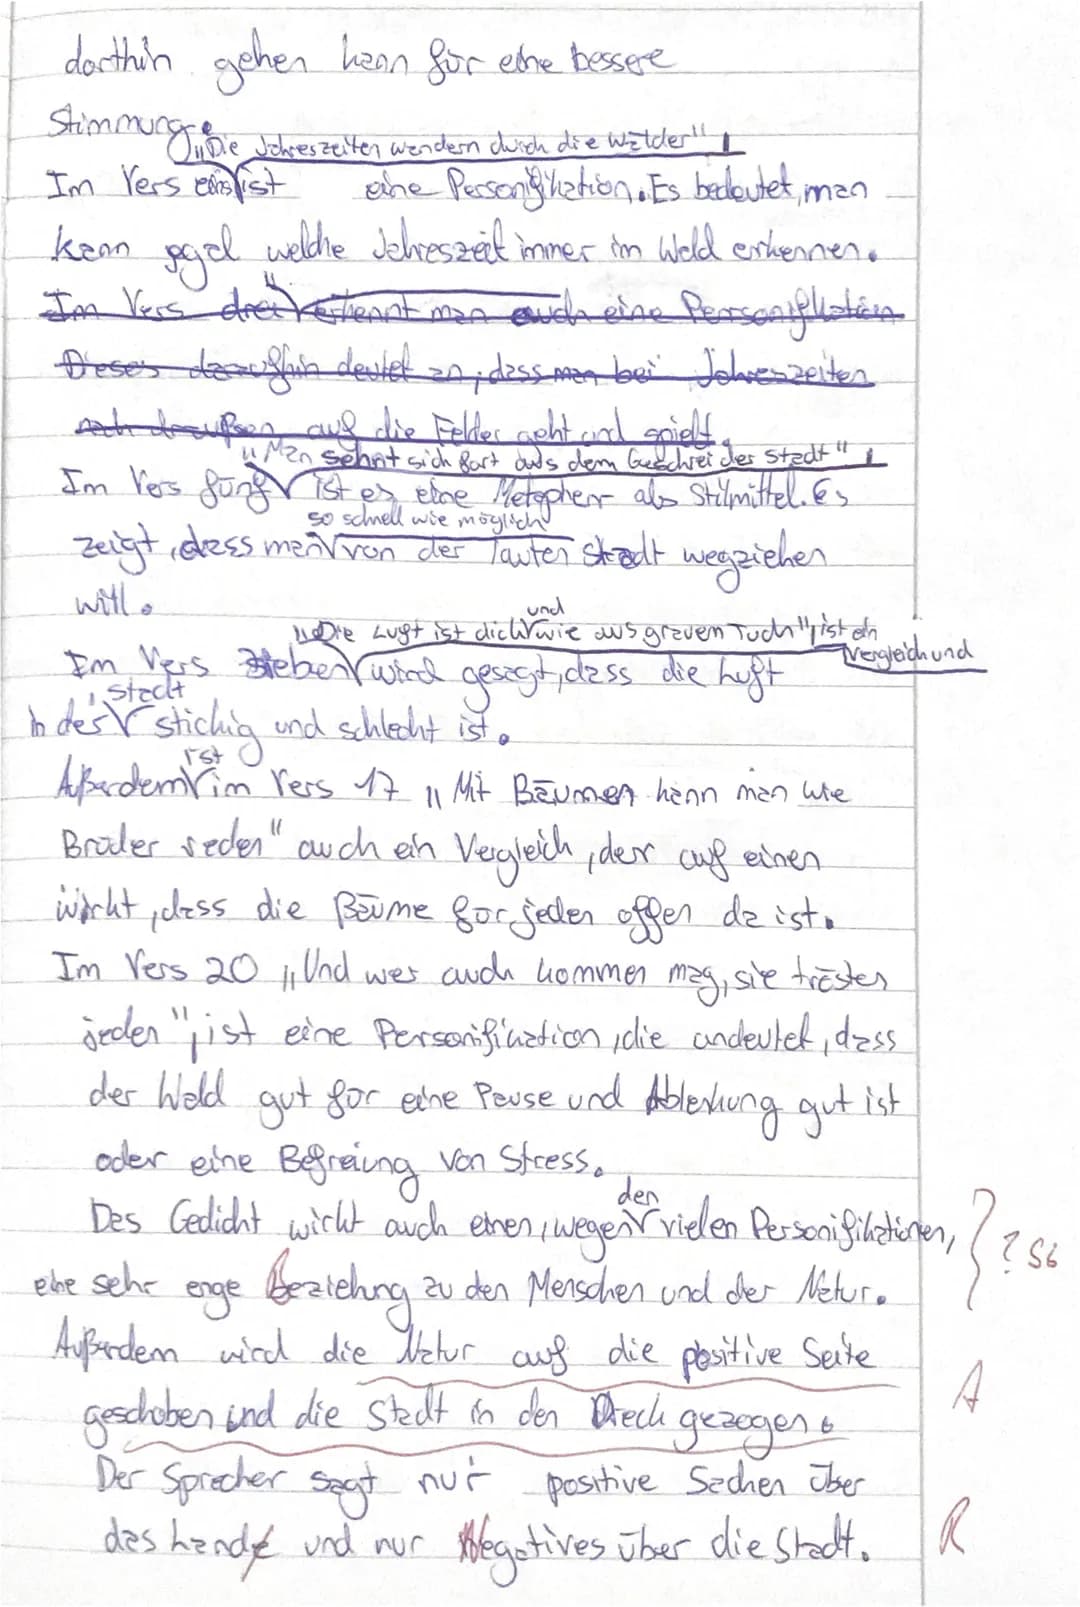 dorthin gehen kann für eine bessere
Stimmung.
„Die Jahreszeiten wandern durch die Wälder",
Im Vers eins ist eine Personifikation. Es bedeutet, man
kann egal welche Jahreszeit immer im Wald erkennen.
Im Vers drei erkennt man auch eine Personifikation
Dieses daraufhin deutet an, dass man bei Jahreszeiten
nach draußen auf die Felder geht und spielt.
„Man sehnt sich fort aus dem Geschrei der Stadt",
Im Vers fünf ist es eine Metapher als Stilmittel. Es
so schnell wie möglich
zeigt, dass man von der lauten Stadt wegziehen
will.
und
„Die Luft ist dick wie aus grauem Tuch", ist ein
Vergleich und
Im Vers sieben wird gesagt, dass die Luft
Stadt
in der stickig und schlecht ist.
ist
Außerdem im Vers 17 „Mit Bäumen kann man wie
Brüder reden" auch ein Vergleich, der auf einen
wirkt, dass die Bäume für jeden offen da ist.
Im Vers 20 „Und wer auch kommen mag, sie trösten
jeden", ist eine Personifikation, die andeutet, dass
der Wald gut für eine Pause und Ablenkung gut ist
oder eine Befreiung von Stress.
den
Das Gedicht wirkt auch einen, wegen vielen Personifikationen, ? Sb
eine sehr enge Beziehung zu den Menschen und der Natur.
Außerdem wird die Natur auf die positive Seite A
geschoben und die Stadt in den Dreck gezogen.
Der Sprecher sagt nur positive Sachen über
das Land und nur Negatives über die Stadt. R